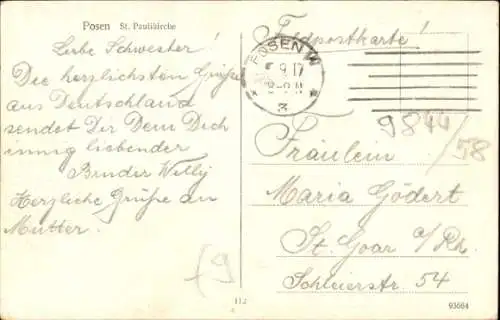 Posen St. Paulikirche
Liebe Schwester!
Die herzlichsten Grüße
aus Deutschland
sendet Dir Dein Dich
innig liebender
Bruder Willy
Herzliche Grüße an
Mutter.
Feldpostkarte!
POSEN W
9.17
8-9 N
3
9844/58
Fräulein
Maria Gödert
St. Goar a/Rh.
Schleierstr. 54
112
93664